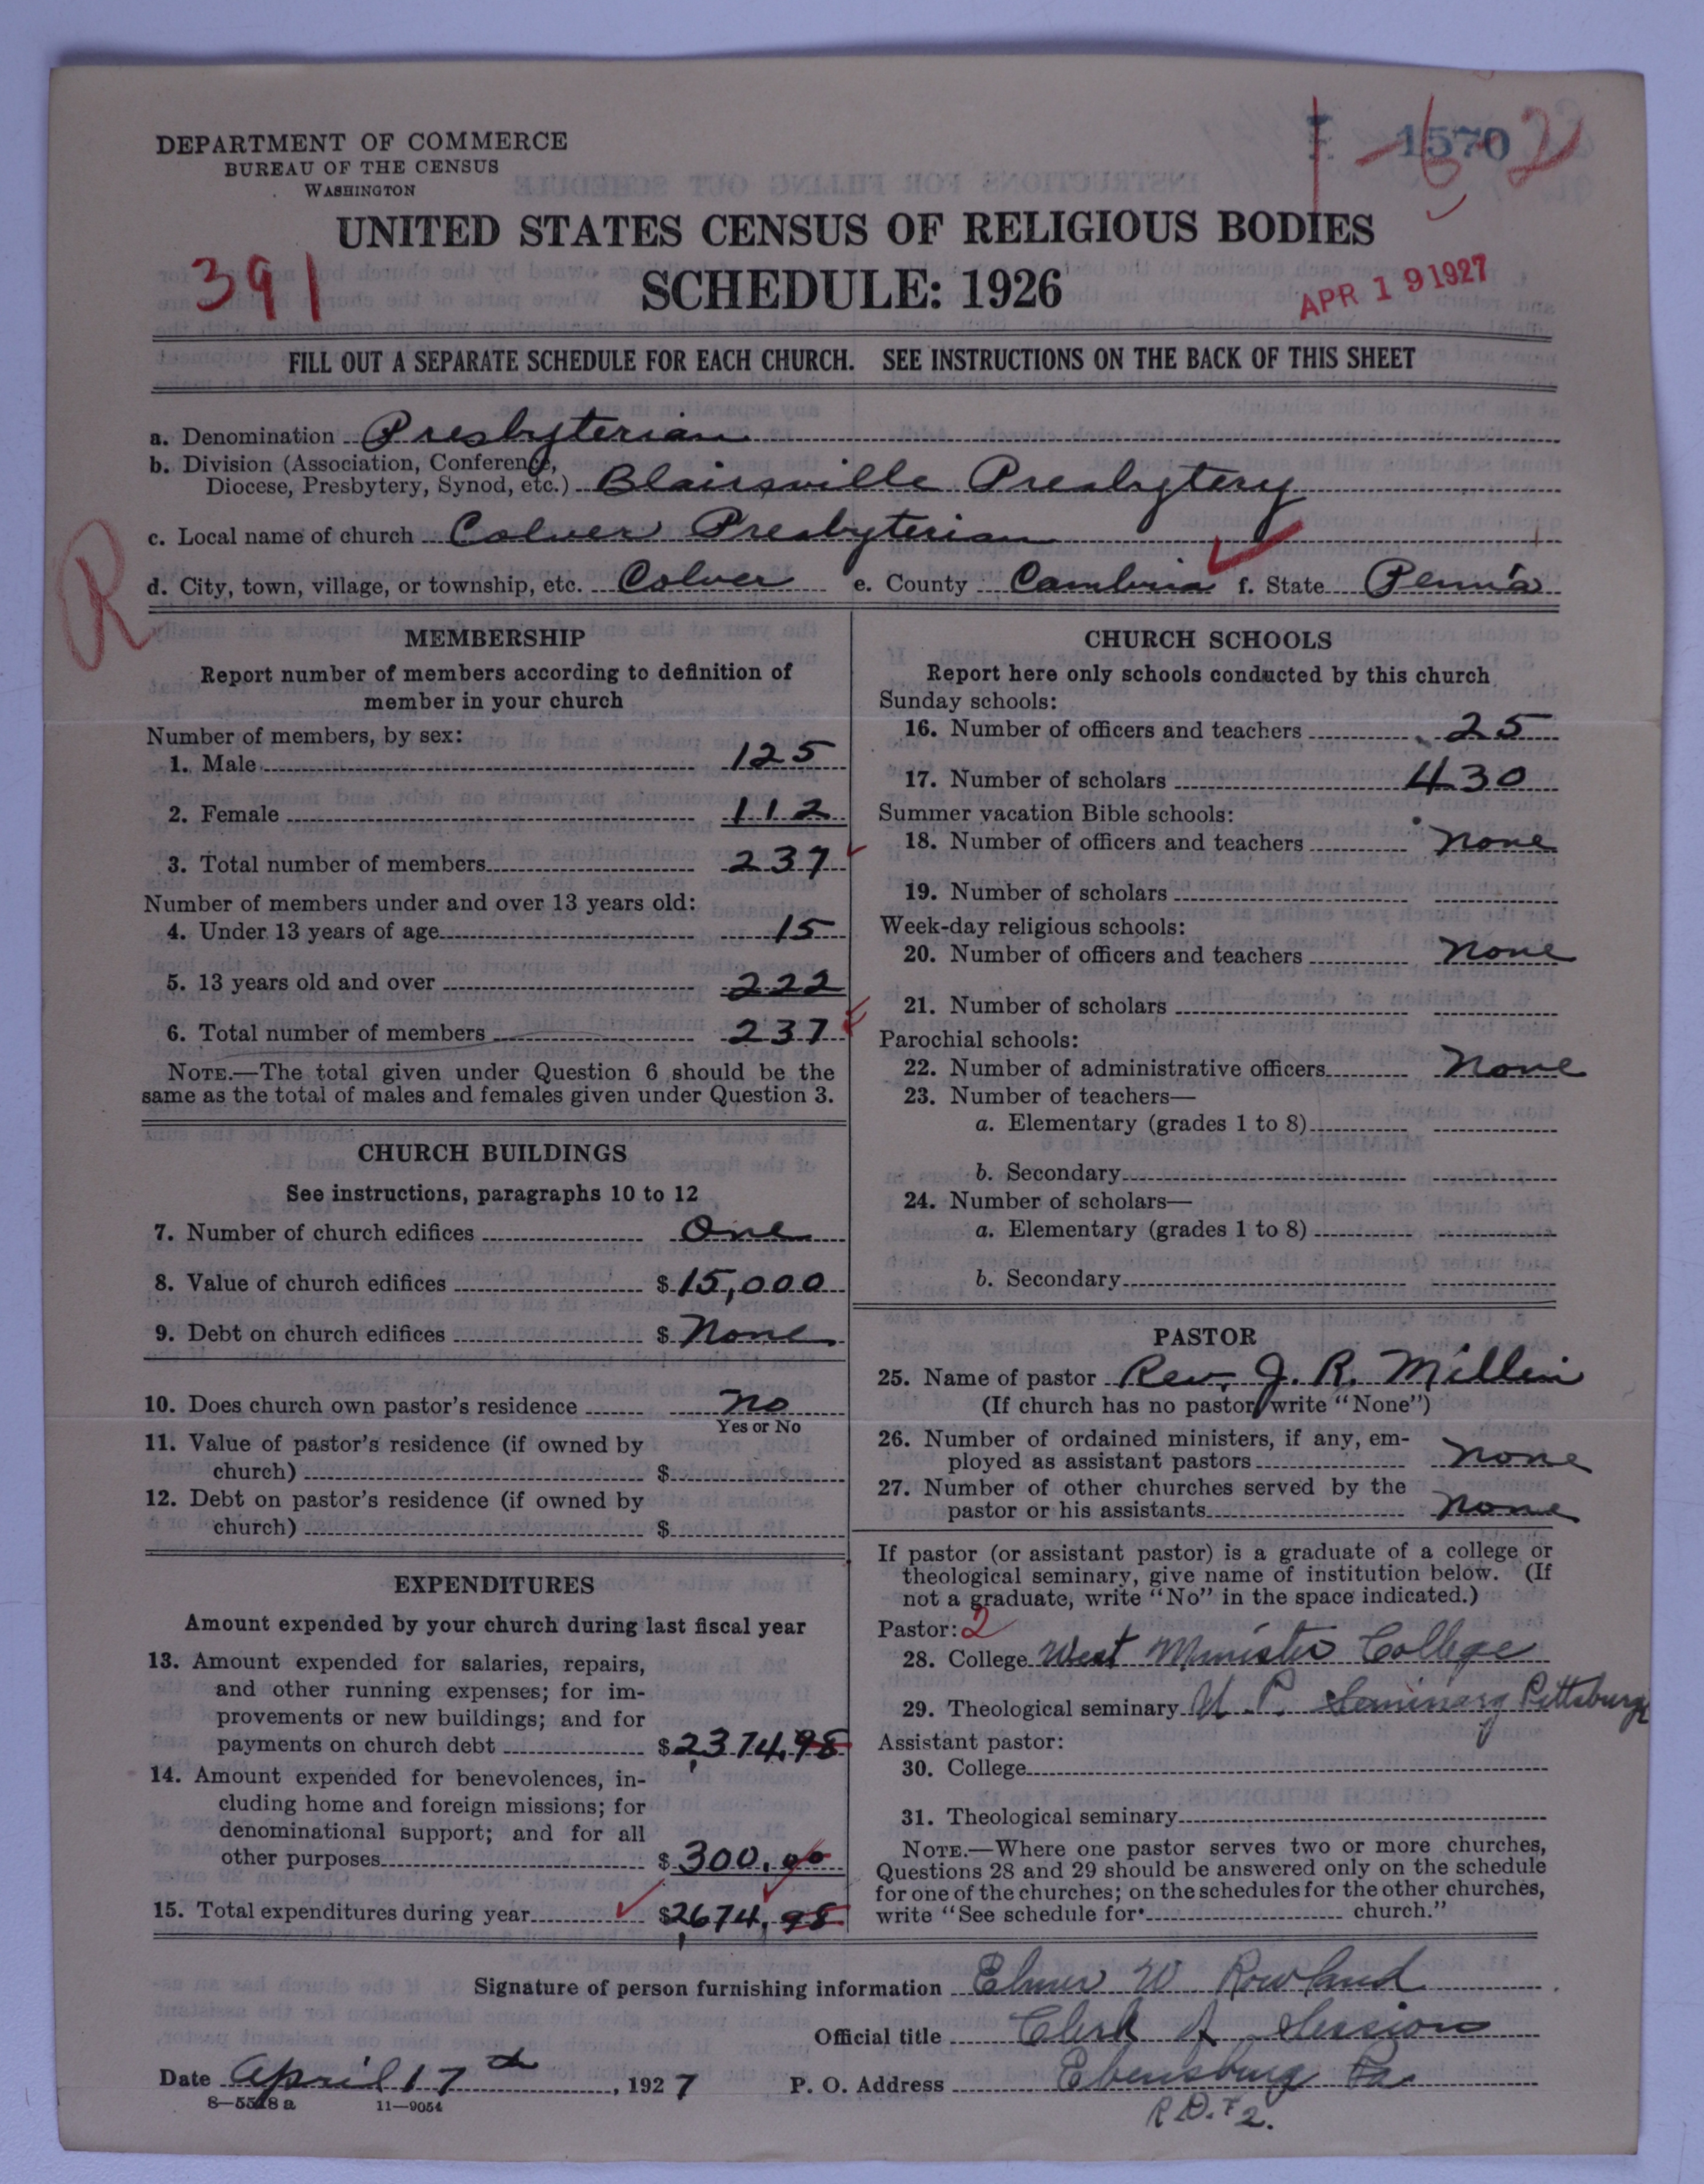 DEPARTMENT OF COMMERCE
BUREAU OF THE CENSUS
WASHINGTON
1570
1-6-2
UNITED STATES CENSUS OF RELIGIOUS BODIES
391
SCHEDULE: 1926
APR 19 1927
FILL OUT A SEPARATE SCHEDULE FOR EACH CHURCH. SEE INSTRUCTIONS ON THE BACK OF THIS SHEET
a. Denomination Presbyterian
b. Division (Association, Conference,
Diocese, Presbytery, Synod, etc.) Blairsville Presbytery
c. Local name of church Colver Presbyterian
R
d. City, town, village, or township, etc. Colver e. County Cambria f. State Penn'a
MEMBERSHIP
Report number of members according to definition of
member in your church
Number of members, by sex:
1. Male 125
2. Female 112
3. Total number of members 237
Number of members under and over 13 years old:
4. Under 13 years of age 15
5. 13 years old and over 222
6. Total number of members 237
NOTE.—The total given under Question 6 should be the
same as the total of males and females given under Question 3.
CHURCH BUILDINGS
See instructions, paragraphs 10 to 12
7. Number of church edifices One
8. Value of church edifices $ 15,000
9. Debt on church edifices $ None
10. Does church own pastor's residence No
Yes or No
11. Value of pastor's residence (if owned by
church) $
12. Debt on pastor's residence (if owned by
church) $
EXPENDITURES
Amount expended by your church during last fiscal year
13. Amount expended for salaries, repairs,
and other running expenses; for im-
provements or new buildings; and for
payments on church debt $2,374.98
14. Amount expended for benevolences, in-
cluding home and foreign missions; for
denominational support; and for all
other purposes $ 300.00
15. Total expenditures during year $2,674.98
CHURCH SCHOOLS
Report here only schools conducted by this church
Sunday schools:
16. Number of officers and teachers 25
17. Number of scholars 430
Summer vacation Bible schools:
18. Number of officers and teachers None
19. Number of scholars
Week-day religious schools:
20. Number of officers and teachers None
21. Number of scholars
Parochial schools:
22. Number of administrative officers None
23. Number of teachers—
a. Elementary (grades 1 to 8)
b. Secondary
24. Number of scholars—
a. Elementary (grades 1 to 8)
b. Secondary
PASTOR
25. Name of pastor Rev. J. R. Millin
(If church has no pastor, write "None")
26. Number of ordained ministers, if any, em-
ployed as assistant pastors None
27. Number of other churches served by the
pastor or his assistants None
If pastor (or assistant pastor) is a graduate of a college or
theological seminary, give name of institution below. (If
not a graduate, write "No" in the space indicated.)
Pastor: 2
28. College West Minister College
29. Theological seminary U. P. Seminary Pittsburg
Assistant pastor:
30. College
31. Theological seminary
NOTE.—Where one pastor serves two or more churches,
Questions 28 and 29 should be answered only on the schedule
for one of the churches; on the schedules for the other churches,
write "See schedule for church."
Signature of person furnishing information Elmer W Rowland
Official title Clerk of Session
Date April 17th, 1927 P. O. Address Ebensburg Pa
8—5518 a 11—9054
R.D. #2.